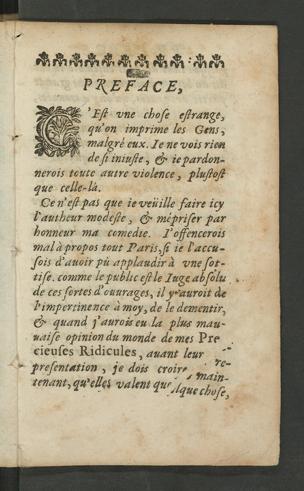 PREFACE,
C'Est vne chose estrange,
qu'on imprime les Gens,
malgré eux. Ie ne vois rien
de si iniuste, & ie pardon-
nerois toute autre violence, plustost
que celle-là.
Ce n'est pas que ie veüille faire icy
l'autheur modeste, & mépriser par
honneur ma comedie. I'offencerois
mal à propos tout Paris, si ie l'accu-
sois d'auoir pû applaudir à vne sot-
tise. comme le public est le Iuge absolu
de ces sortes d'ouurages, il y auroit de
l'impertinence à moy, de le dementir,
& quand j'aurois eu la plus mau-
uaise opinion du monde de mes Pre
cieuses Ridicules, auant leur
presentation, je dois croire
tenant, qu'elles valent quelque chose,
re-
main-